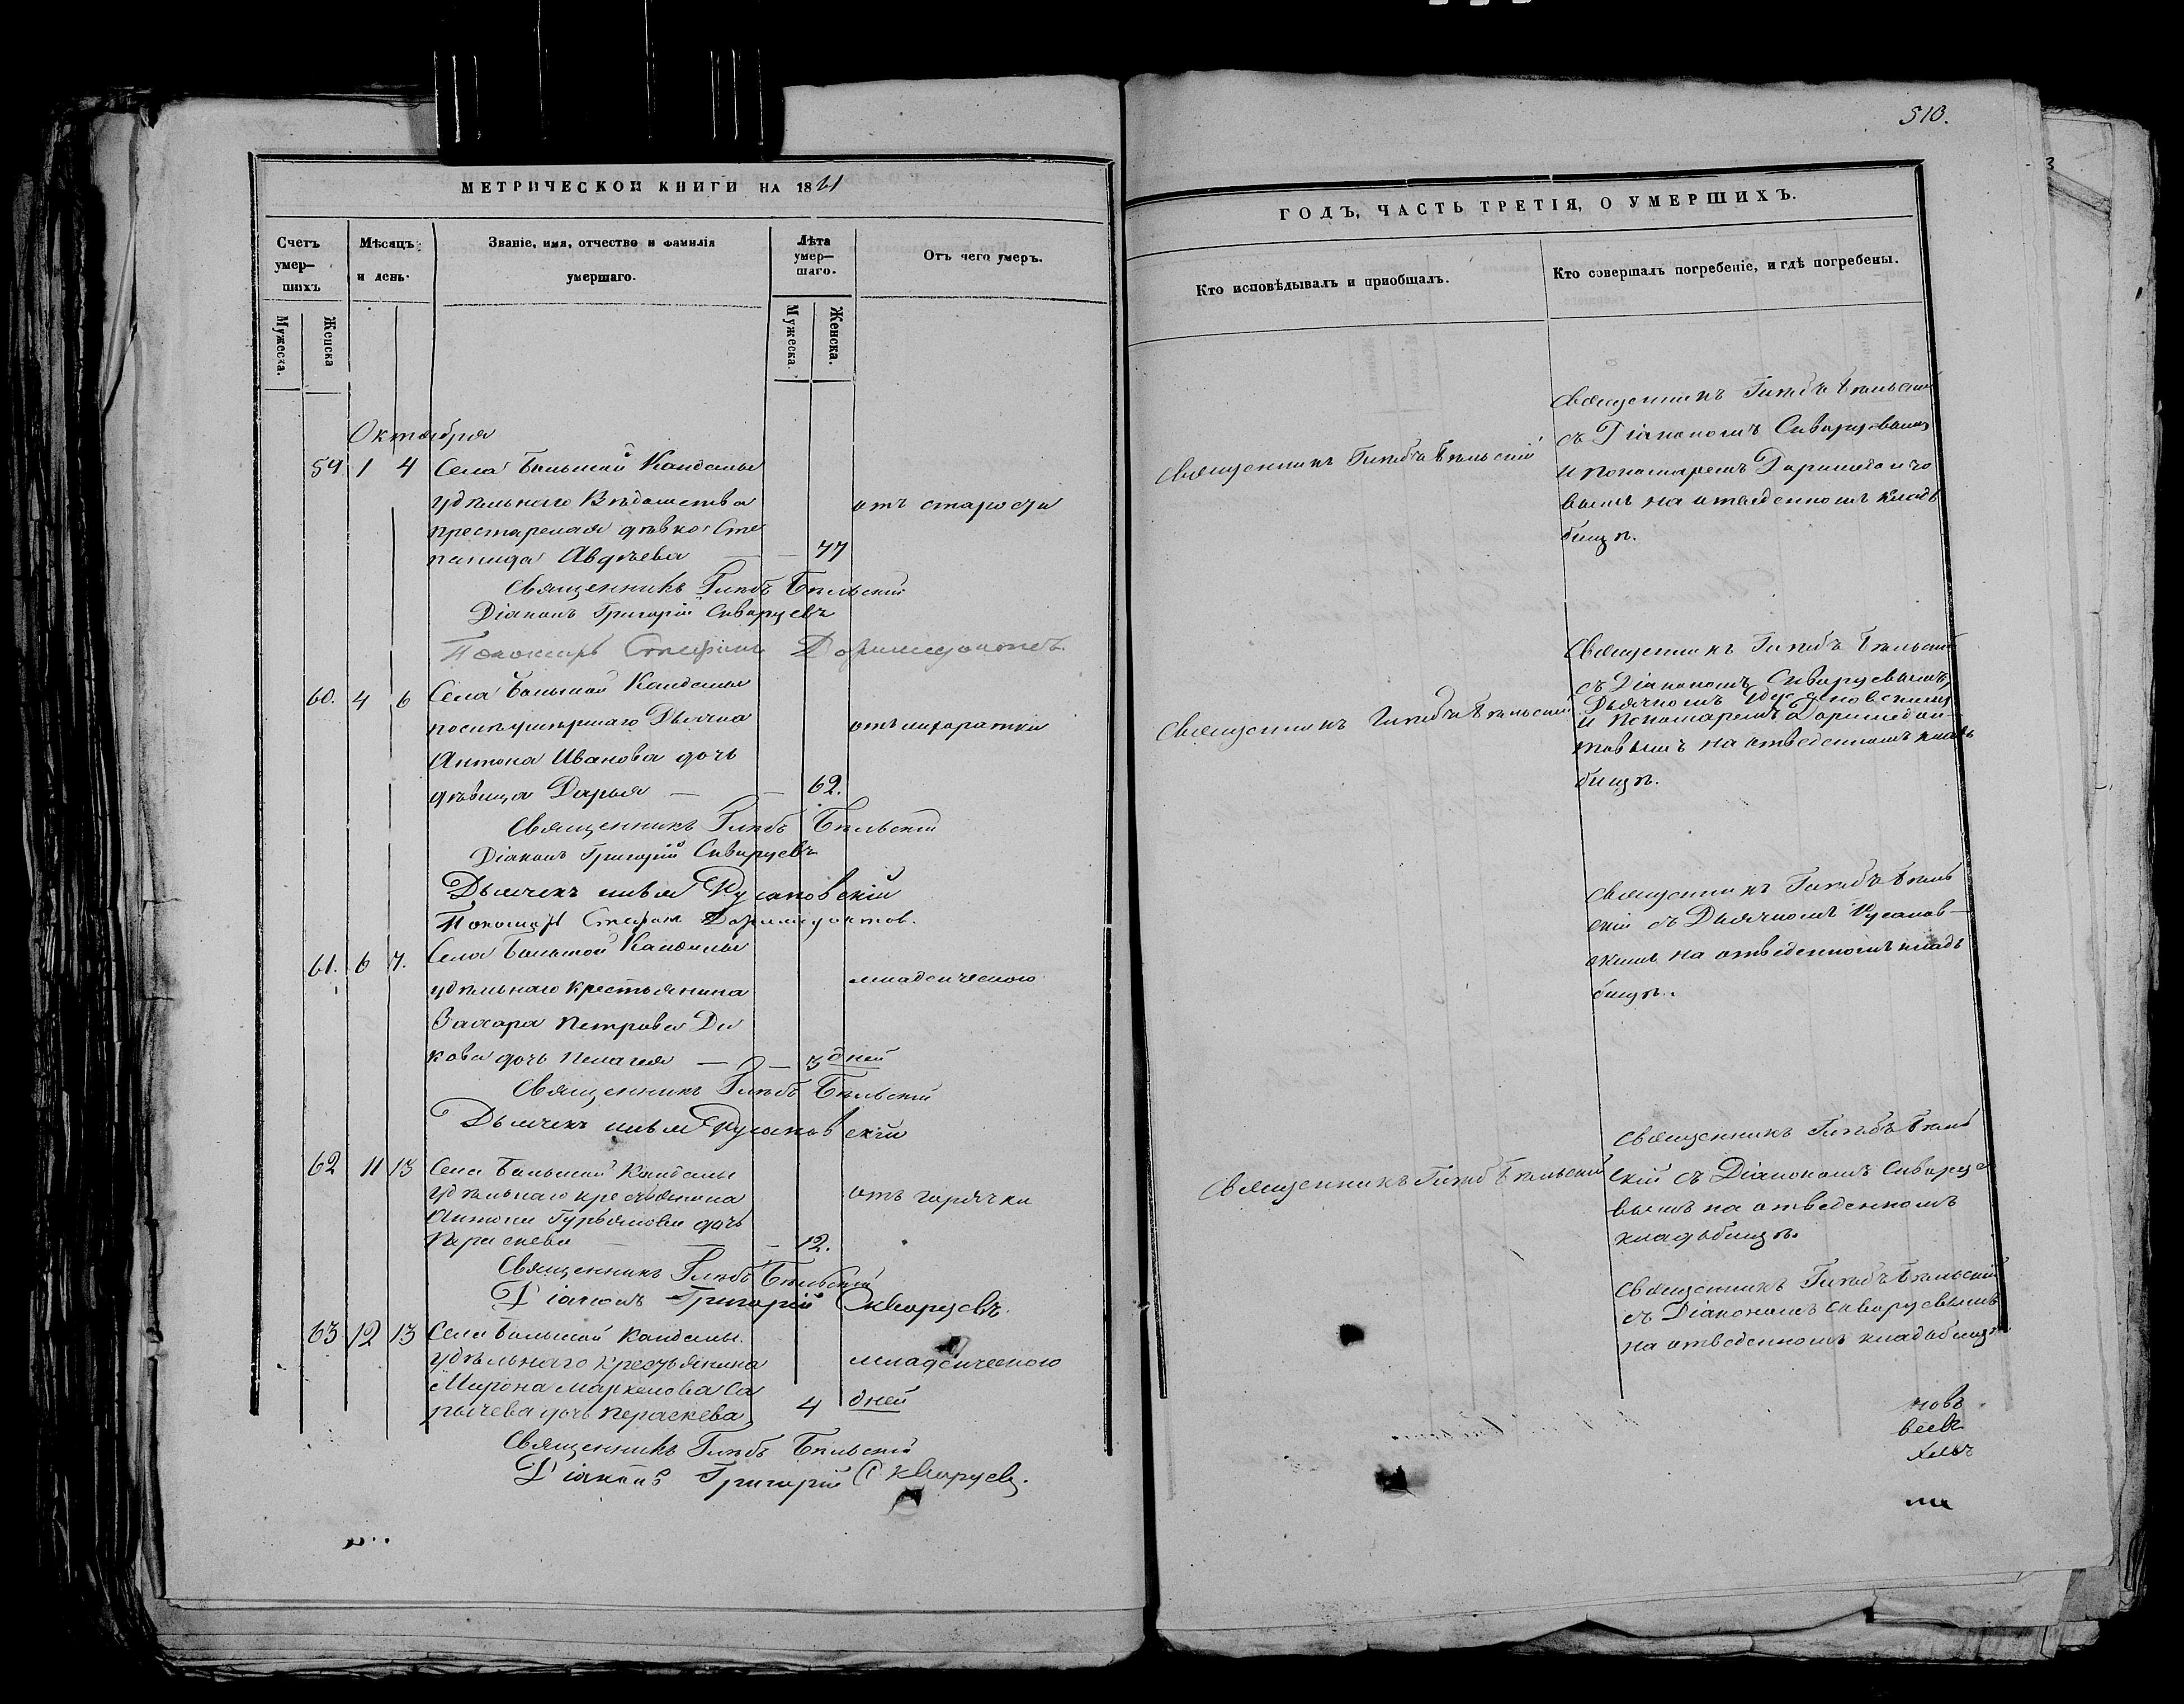 510.
МЕТРИЧЕСКОЙ КНИГИ НА 1861
Счетъ умер—шихъ
Мѣсяцъ и день.
Званіе, имя, отчество и фамилія умершаго.
Лѣта умер—шаго.
Отъ чего умеръ.
Мужеска.
Женска
Мужеска.
Женска.
Октября
59 1 4 Села Большой Кандалы
удѣльнаго Вѣдомства
отъ старости
престарелая дѣвка Сте
панида Авдѣева — 77
Священникъ Глѣбъ Бѣльскій
Діаконъ Григорій Скворцевъ
Пономарь Стефанъ Доримедонтовъ
60. 4 6 Села Большой Кандалы
послѣ умершаго Дьячка
отъ лихорадки
Антона Иванова дочь
дѣвица Дарья — — 62.
Священникъ Глѣбъ Бѣльскій
Діаконъ Григорій Скворцевъ
Дьячекъ Русановскій
Пономарь Стефанъ Доримедонтов.
61. 6 7. Села Большой Кандалы
младенческого
удѣльнаго крестьянина
Захара Петрова Ди
кова дочь Пелагея — — 3 дней
Священникъ Глѣбъ Бѣльскій
Дьячекъ Русановскій
62 11 13 Села Большой Кандалы
удѣльнаго крестьянина
отъ горячки
Антона Гурьянова дочь
Параскева — 12.
Священникъ Глѣбъ Бѣльскій
Діаконъ Григорій Скворцевъ.
63 12 13 Села Большой Кандалы.
удѣльнаго крестьянина
младенческого
Мирона Маркелова Са
рычева дочь Параскева 4 дней
Священникъ Глѣбъ Бѣльскій
Діаконъ Григорій Скворцевъ.
ГОДЪ, ЧАСТЬ ТРЕТІЯ, О УМЕРШИХЪ.
Кто исповѣдывалъ и приобщалъ.
Кто совершалъ погребеніе, и гдѣ погребены.
Священникъ Глѣбъ Бѣльскій
Священникъ Глѣбъ Бѣльскій
съ Діакономъ Скворцовымъ
и пономаремъ Доримедонто
вымъ на отведенномъ клад
бищѣ.
Священникъ Глѣбъ Бѣльскій
Священникъ Глѣбъ Бѣльскій
съ Діакономъ Скворцевымъ,
Дьячкомъ Русановскимъ
и Пономаремъ Доримедон—
товымъ на отведенномъ клад
бищѣ.
Священникъ Глѣбъ Бѣль
скій съ Дьячкомъ Русанов—
скимъ на отведенномъ клад
бищѣ.
Священникъ Глѣбъ Бѣльскій
Священникъ Глѣбъ Бѣль
скій съ Діакономъ Скворце
вымъ на отведенномъ
кладбищѣ.
Священникъ Глѣбъ Бѣльскій
съ Діакономъ Скворцевымъ
на отведенномъ кладбищѣ
новъ